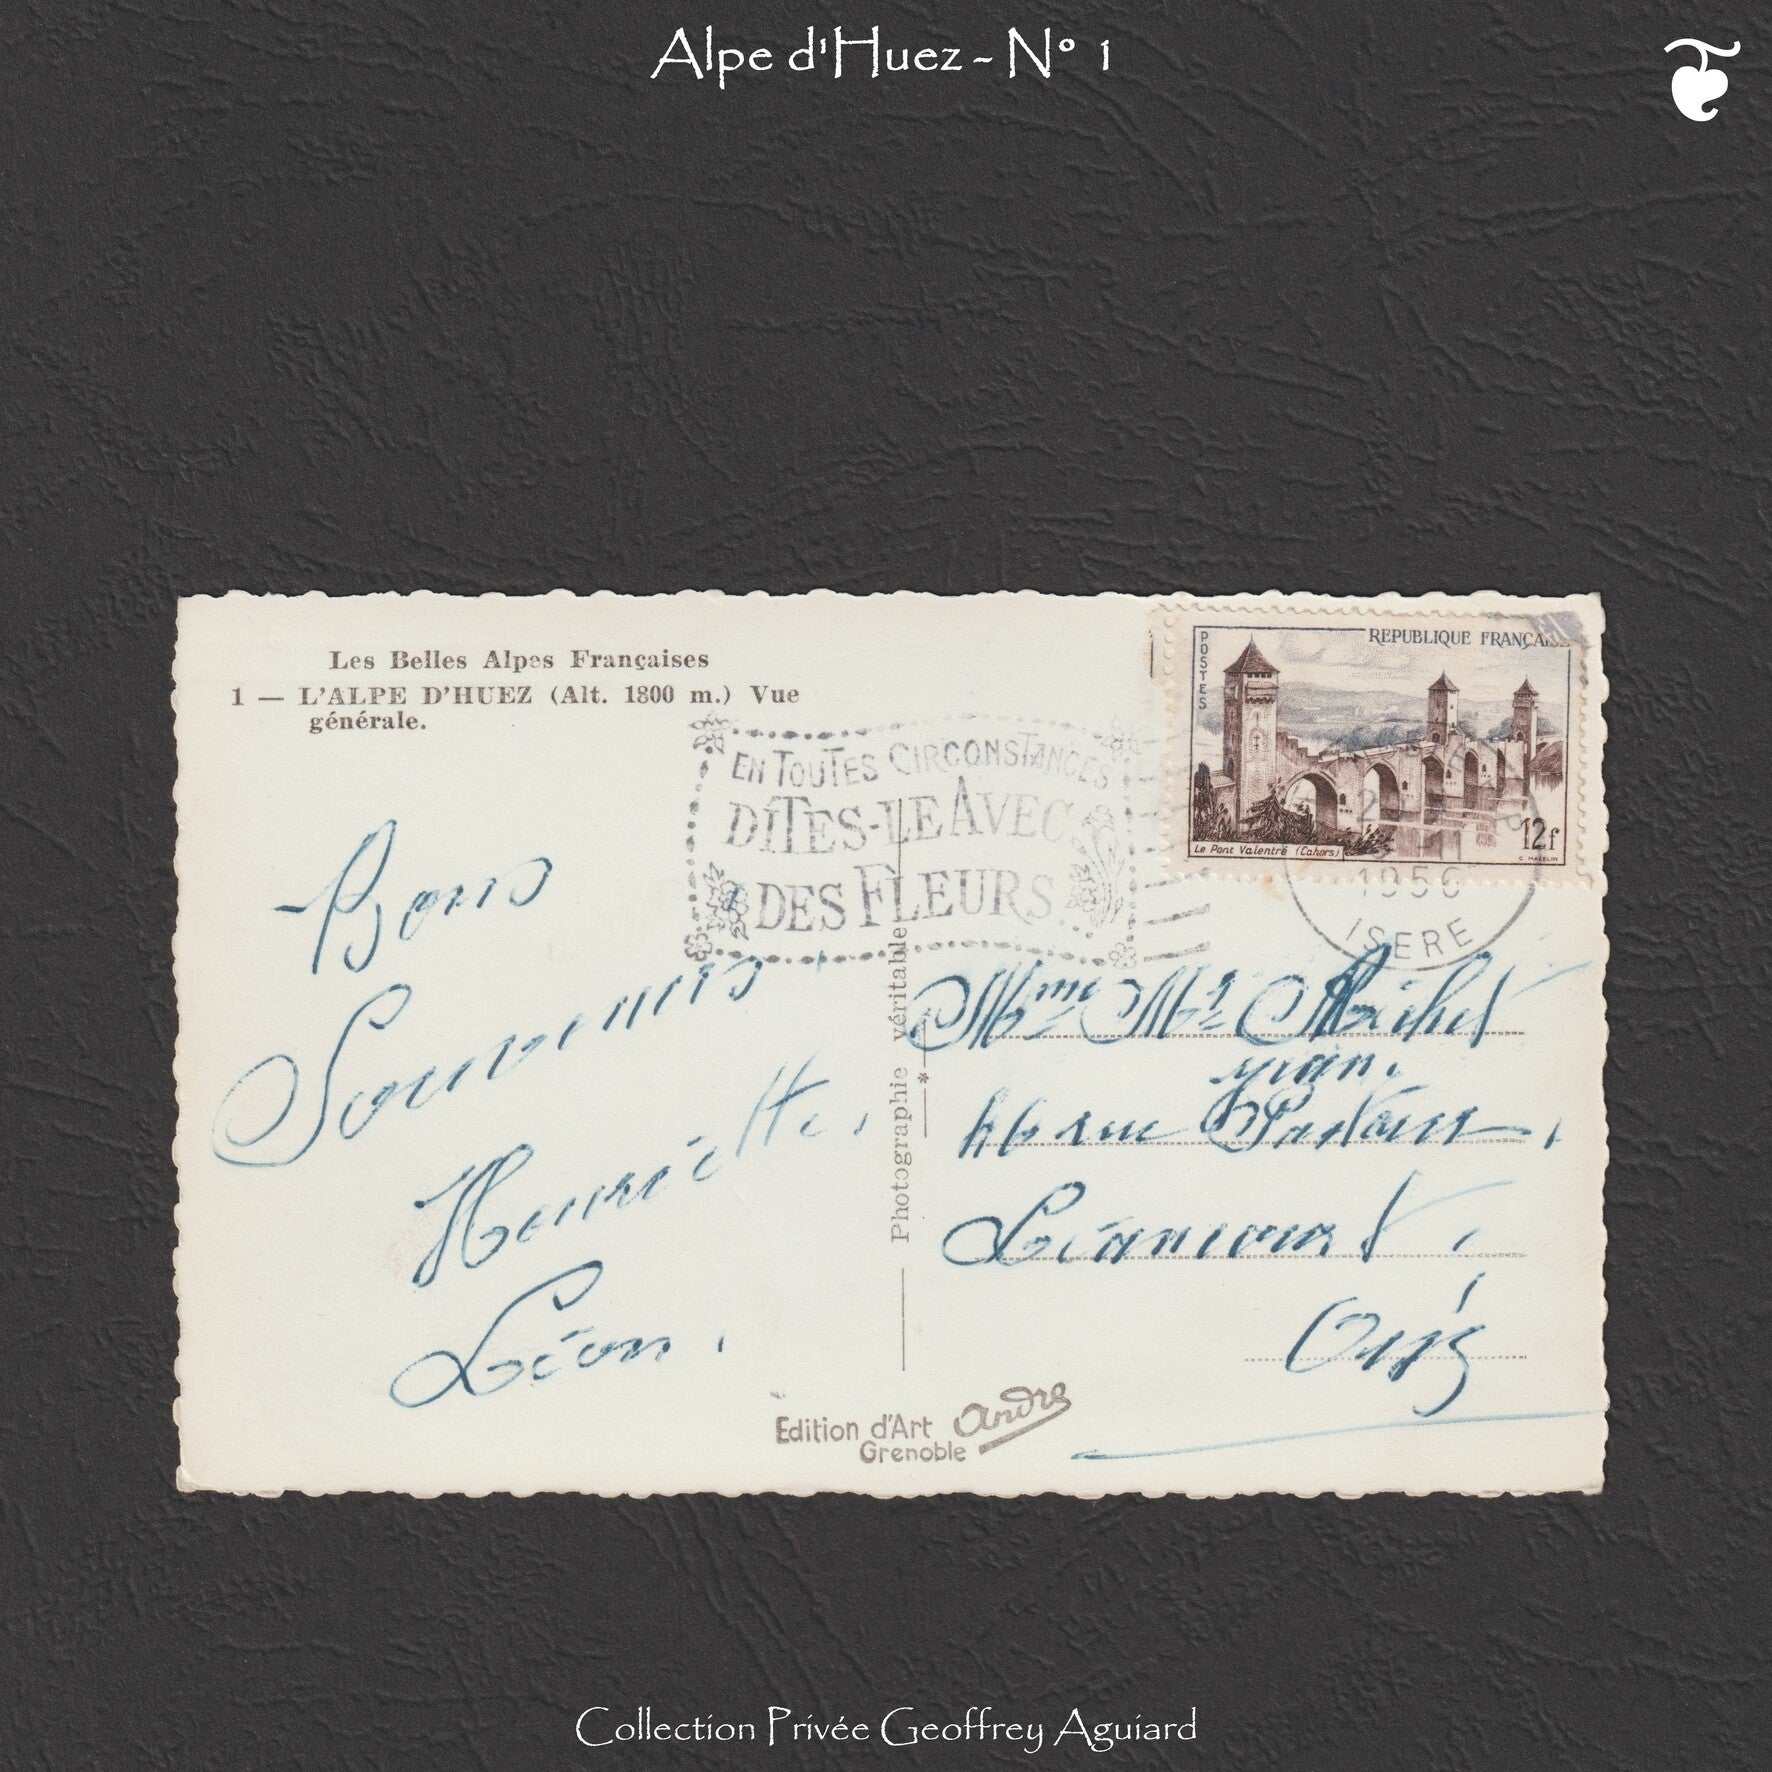 Alpe d'Huez - N° 1
Les Belles Alpes Françaises
1 — L'ALPE D'HUEZ (Alt. 1800 m.) Vue
générale.
EN TOUTES CIRCONSTANCES
DITES-LE AVEC
DES FLEURS
POSTES
REPUBLIQUE FRANÇAISE
Le Pont Valentré (Cahors)
12f
1956
ISERE
Bons
Souvenirs
Henriette,
Léon.
Photographie véritable
Mme Mr Michel
rue Pasteur,
Liancourt,
Oise
Edition d'Art André
Grenoble
Collection Privée Geoffrey Aguiard